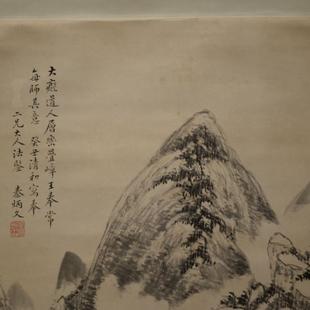 大癡道人層巒疊嶂王奉常
每師其意 癸丑清和寫奉
二兄大人法鑒 秦炳文